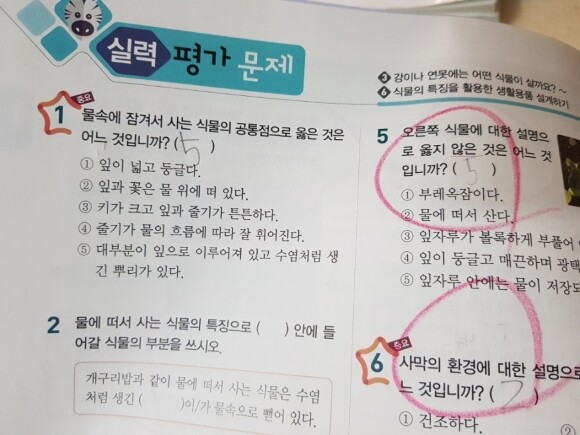 실력 평가 문제
③ 강이나 연못에는 어떤 식물이 살까요? ~
⑥ 식물의 특징을 활용한 생활용품 설계하기
중요
1 물속에 잠겨서 사는 식물의 공통점으로 옳은 것은
어느 것입니까? ( 5 )
① 잎이 넓고 둥글다.
② 잎과 꽃은 물 위에 떠 있다.
③ 키가 크고 잎과 줄기가 튼튼하다.
④ 줄기가 물의 흐름에 따라 잘 휘어진다.
⑤ 대부분이 잎으로 이루어져 있고 수염처럼 생
긴 뿌리가 있다.
2 물에 떠서 사는 식물의 특징으로 ( ) 안에 들
어갈 식물의 부분을 쓰시오.
개구리밥과 같이 물에 떠서 사는 식물은 수염
처럼 생긴 ( )이/가 물속으로 뻗어 있다.
5 오른쪽 식물에 대한 설명으
로 옳지 않은 것은 어느 것
입니까? ( 5 )
① 부레옥잠이다.
② 물에 떠서 산다.
③ 잎자루가 볼록하게 부풀어
④ 잎이 둥글고 매끈하며 광택
⑤ 잎자루 안에는 물이 저장되
중요
6 사막의 환경에 대한 설명으로
느 것입니까? ( 2 )
① 건조하다. ②